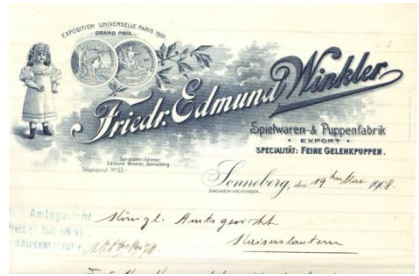 EXPOSITION UNIVERSELLE PARIS 1900.
GRAND PRIX.
Friedr. Edmund Winkler
Spielwaren- & Puppenfabrik
EXPORT
SPECIALITÄT: FEINE GELENKPUPPEN.
Telegramm-Adresse:
Edmund Winkler, Sonneberg
Telephonruf Nº53
Sonneberg, den 19ten Mai 1908.
SACHSEN-MEININGEN.
Amtsgericht
Königl. Amtsgericht
KAISERSLAUTERN
Kaiserslautern